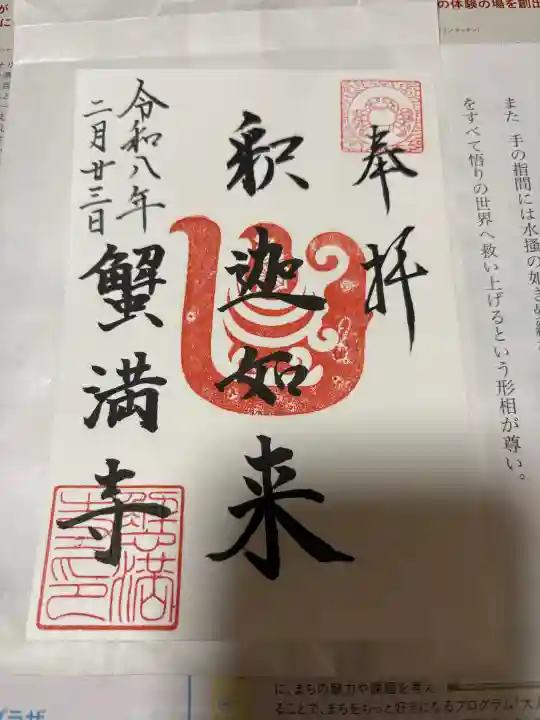 奉拝
釈迦如来
令和八年
二月廿三日
蟹満寺
蟹満
寺印
の体験の場を創出
また 手の指間には水掻の如き
をすべて悟りの世界へ救い上げるという形相が尊い。
に、まちの魅力や課題を考え
ることで、まちをもっと好きになるプログラム「大
プラザ